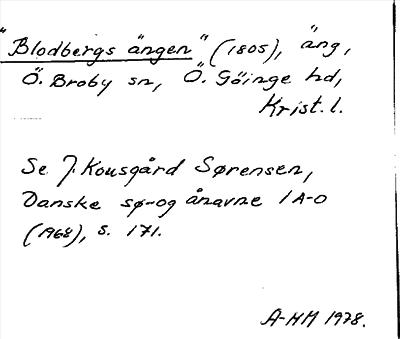 "Blodbergs ängen" (1805), äng,
Ö. Broby sn, Ö. Göinge hd,
Krist. l.
Se J. Kousgård Sørensen,
Danske sø- og ånavne 1 A-O
(1968), s. 171.
A-HM 1978.